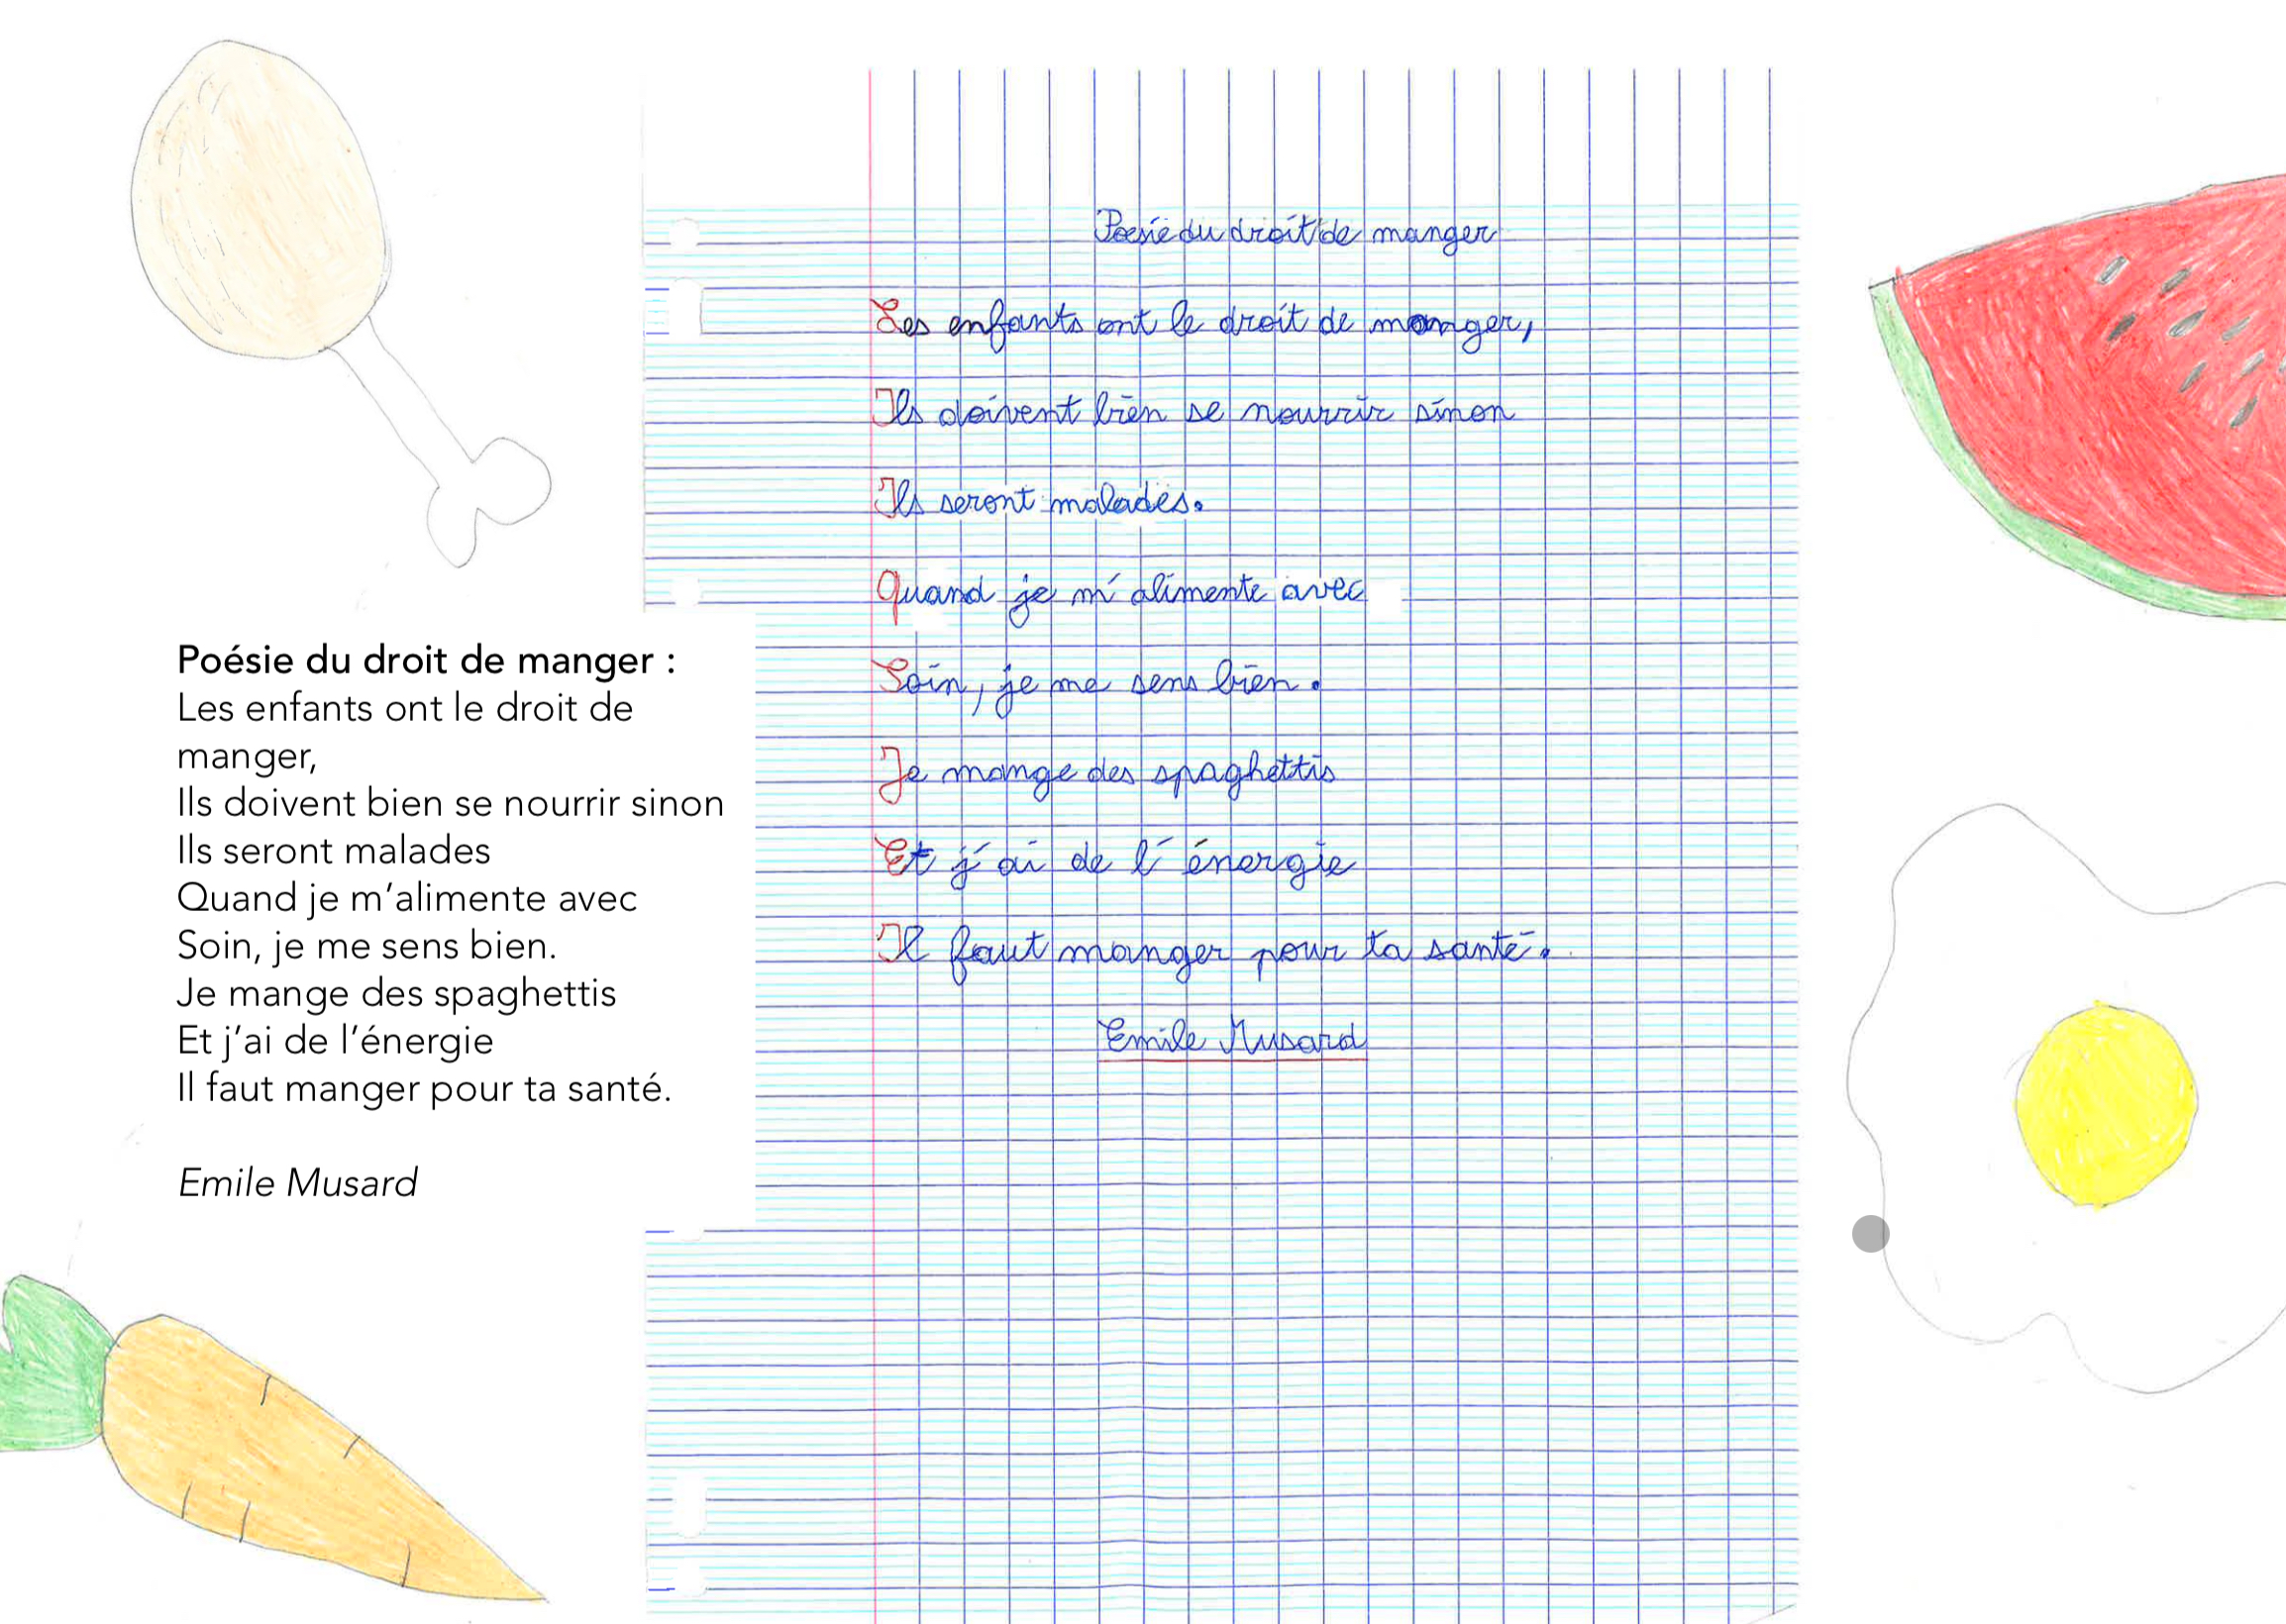 Poésie du droit de manger :
Les enfants ont le droit de
manger,
Ils doivent bien se nourrir sinon
Ils seront malades
Quand je m’alimente avec
Soin, je me sens bien.
Je mange des spaghettis
Et j’ai de l’énergie
Il faut manger pour ta santé.
Emile Musard
Poesie du droit de manger
Les enfants ont le droit de manger,
Ils doivent bien se nourrir sinon
Ils seront malades.
Quand je m'alimente avec
Soin, je me sens bien.
Je mange des spaghettis
Et j'ai de l'énergie
Il faut manger pour ta santé.
Emile Musard